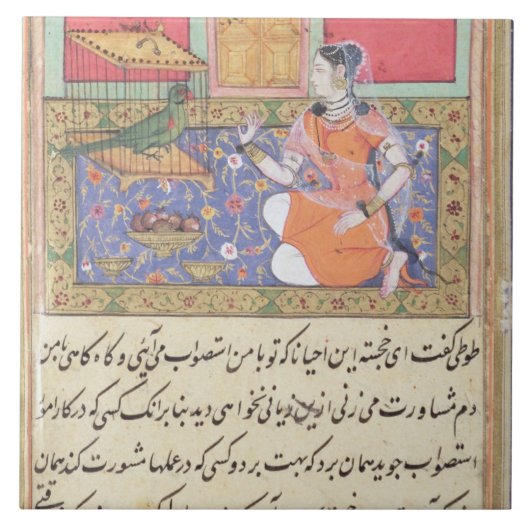 طوطی گفت ای خجسته این احیانا که تو با من استصواب می آیی و گاه گاهی با من
دم مشاورت می زنی ازین زیانی نخواهی دید بنا برانک کسی که در کارها
استصواب جوید همان برد که بهت برد و کسی که در عملها مشورت کند همان